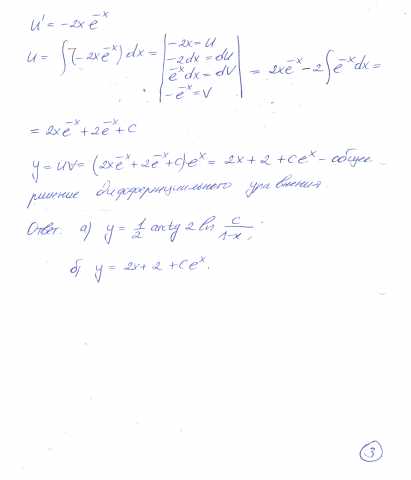 u' = -2xe^{-x}
u = ∫(-2xe^{-x})dx = | -2x = u; -2dx = du; e^{-x}dx = dV; -e^{-x} = V | = 2xe^{-x} - 2∫e^{-x}dx =
= 2xe^{-x} + 2e^{-x} + C
y = uV = (2xe^{-x} + 2e^{-x} + C)·e^{x} = 2x + 2 + Ce^{x} - общее
решение дифференциального уравнения
Ответ: а) y = 1/2 arctg 2 ln C/(1-x);
б) y = 2x + 2 + Ce^{x}.
3